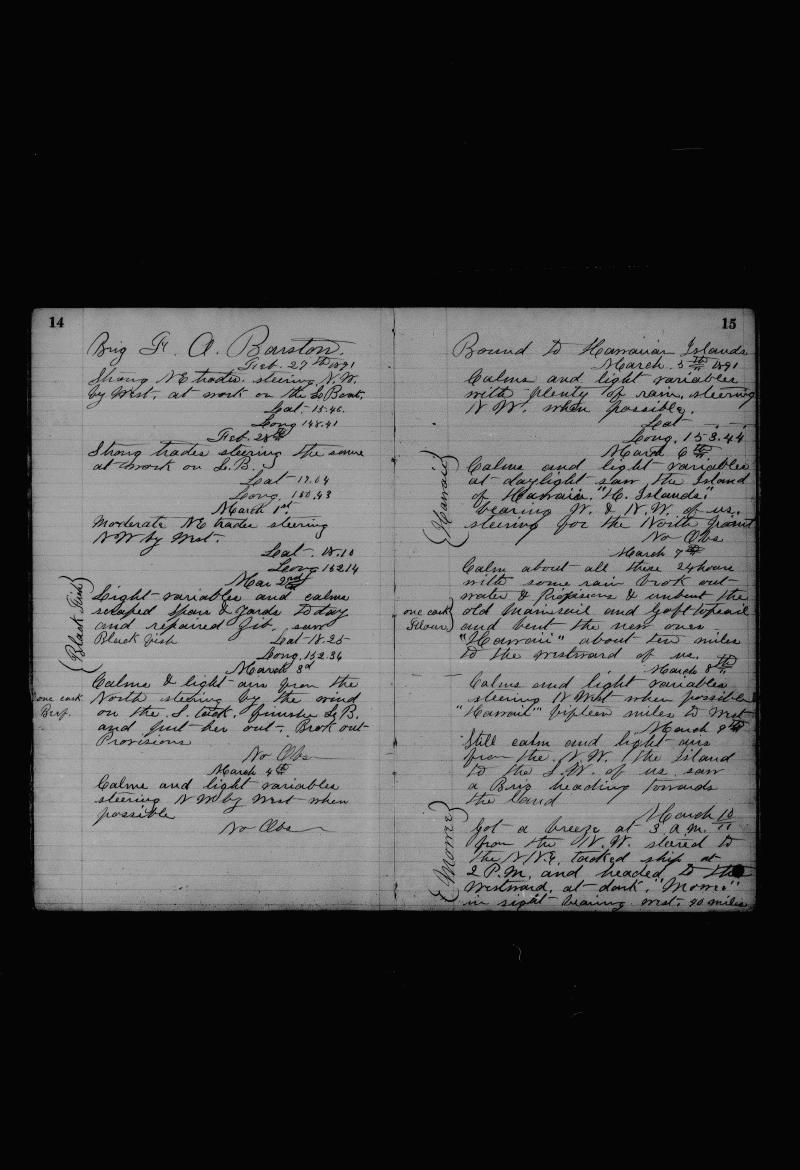 14
Brig F. A. Barstow.
Feb. 27th 1891
Strong NE trades. steering N.W.
by West. at work on the Lb Boat.
Lat 15.46.
Long 148.41
Feb. 28th
Strong trades steering the same
at work on L.B.
Lat 17.04
Long. 150.43
March 1st
Moderate NE trades steering
NW by West.
Lat. 18.10
Long 152.14
Mar 2nd
Light variables and calms
scraped Spars & Yards To day
and repaired Jib. saw
Black fish Lat 18.25
Long. 152.36
{Black Fish}
March 3d
Calms & light airs from the
North steering by the wind
on the S. tack. finishe Lb B.
and put her out. Brok out
Provisions
one cask
Beef.
No Obs
March 4th
Calms and light variables
steering N W by West when
possible
No Obs
15
Bound to Hawaiian Islands
March. 5th 1891
Calms and light variables
with plenty of rain. steering
N W. when possible.
Lat - . -
Long. 153.44
March 6th
Calms and light variables
at daylight saw the Island
of Hawaii. "H. Islands".
bearing W. & N.W. of us.
steering for the North point
{Hawaii}
No Obs
March 7th
Calm about all these 24 hours
with some rain brok out
water & Provisions & unbent the
old Mainsail and Gafftopsail
and bent the new ones
"Hawaii" about ten miles
to the westward of us.
one cask
Flour}
March 8th
Calms and light variables
steering N West when possible
"Hawaii" fifteen miles to West
March 9th
Still calm and light airs
from the N.W. the Island
to the S.W. of us. saw
a Brig heading towards
the land
March 10
Got a breeze at 3 A.M.
from the N.W. steered to
the N.N.E. tacked ship at
2 P.M. and headed to the
Westward. at dark. "Mowee"
in sight bearing west. 20 miles
{Mowee}